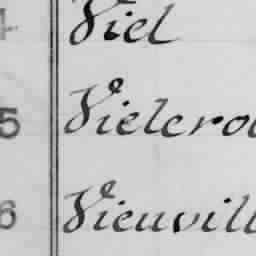 4 Viel
5 Vielcro
6 Vieuvill